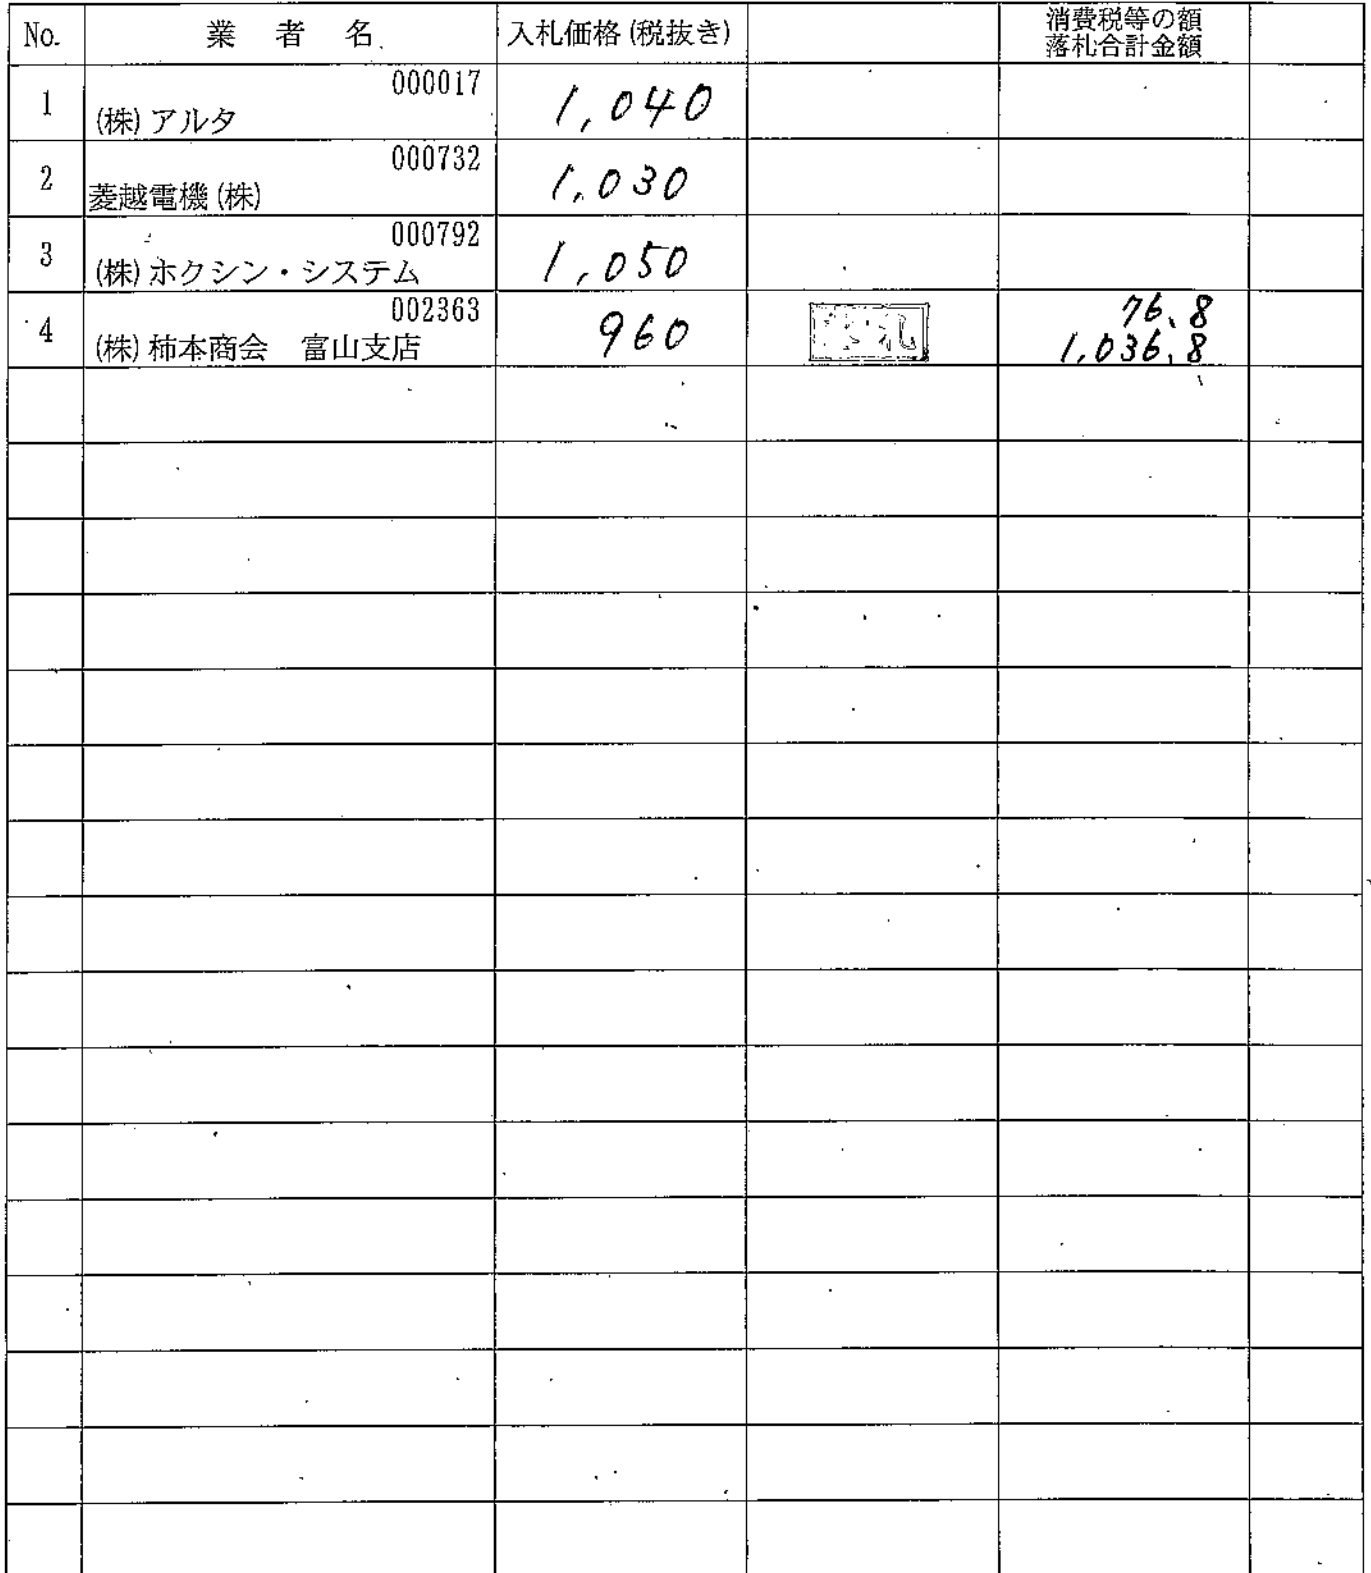 No. 業者名 入札価格(税抜き) 消費税等の額
落札合計金額
000017
1 (株)アルタ 1,040
000732
2 菱越電機(株) 1,030
000792
3 (株)ホクシン・システム 1,050
002363 76.8
4 (株)柿本商会 富山支店 960 1,036.8